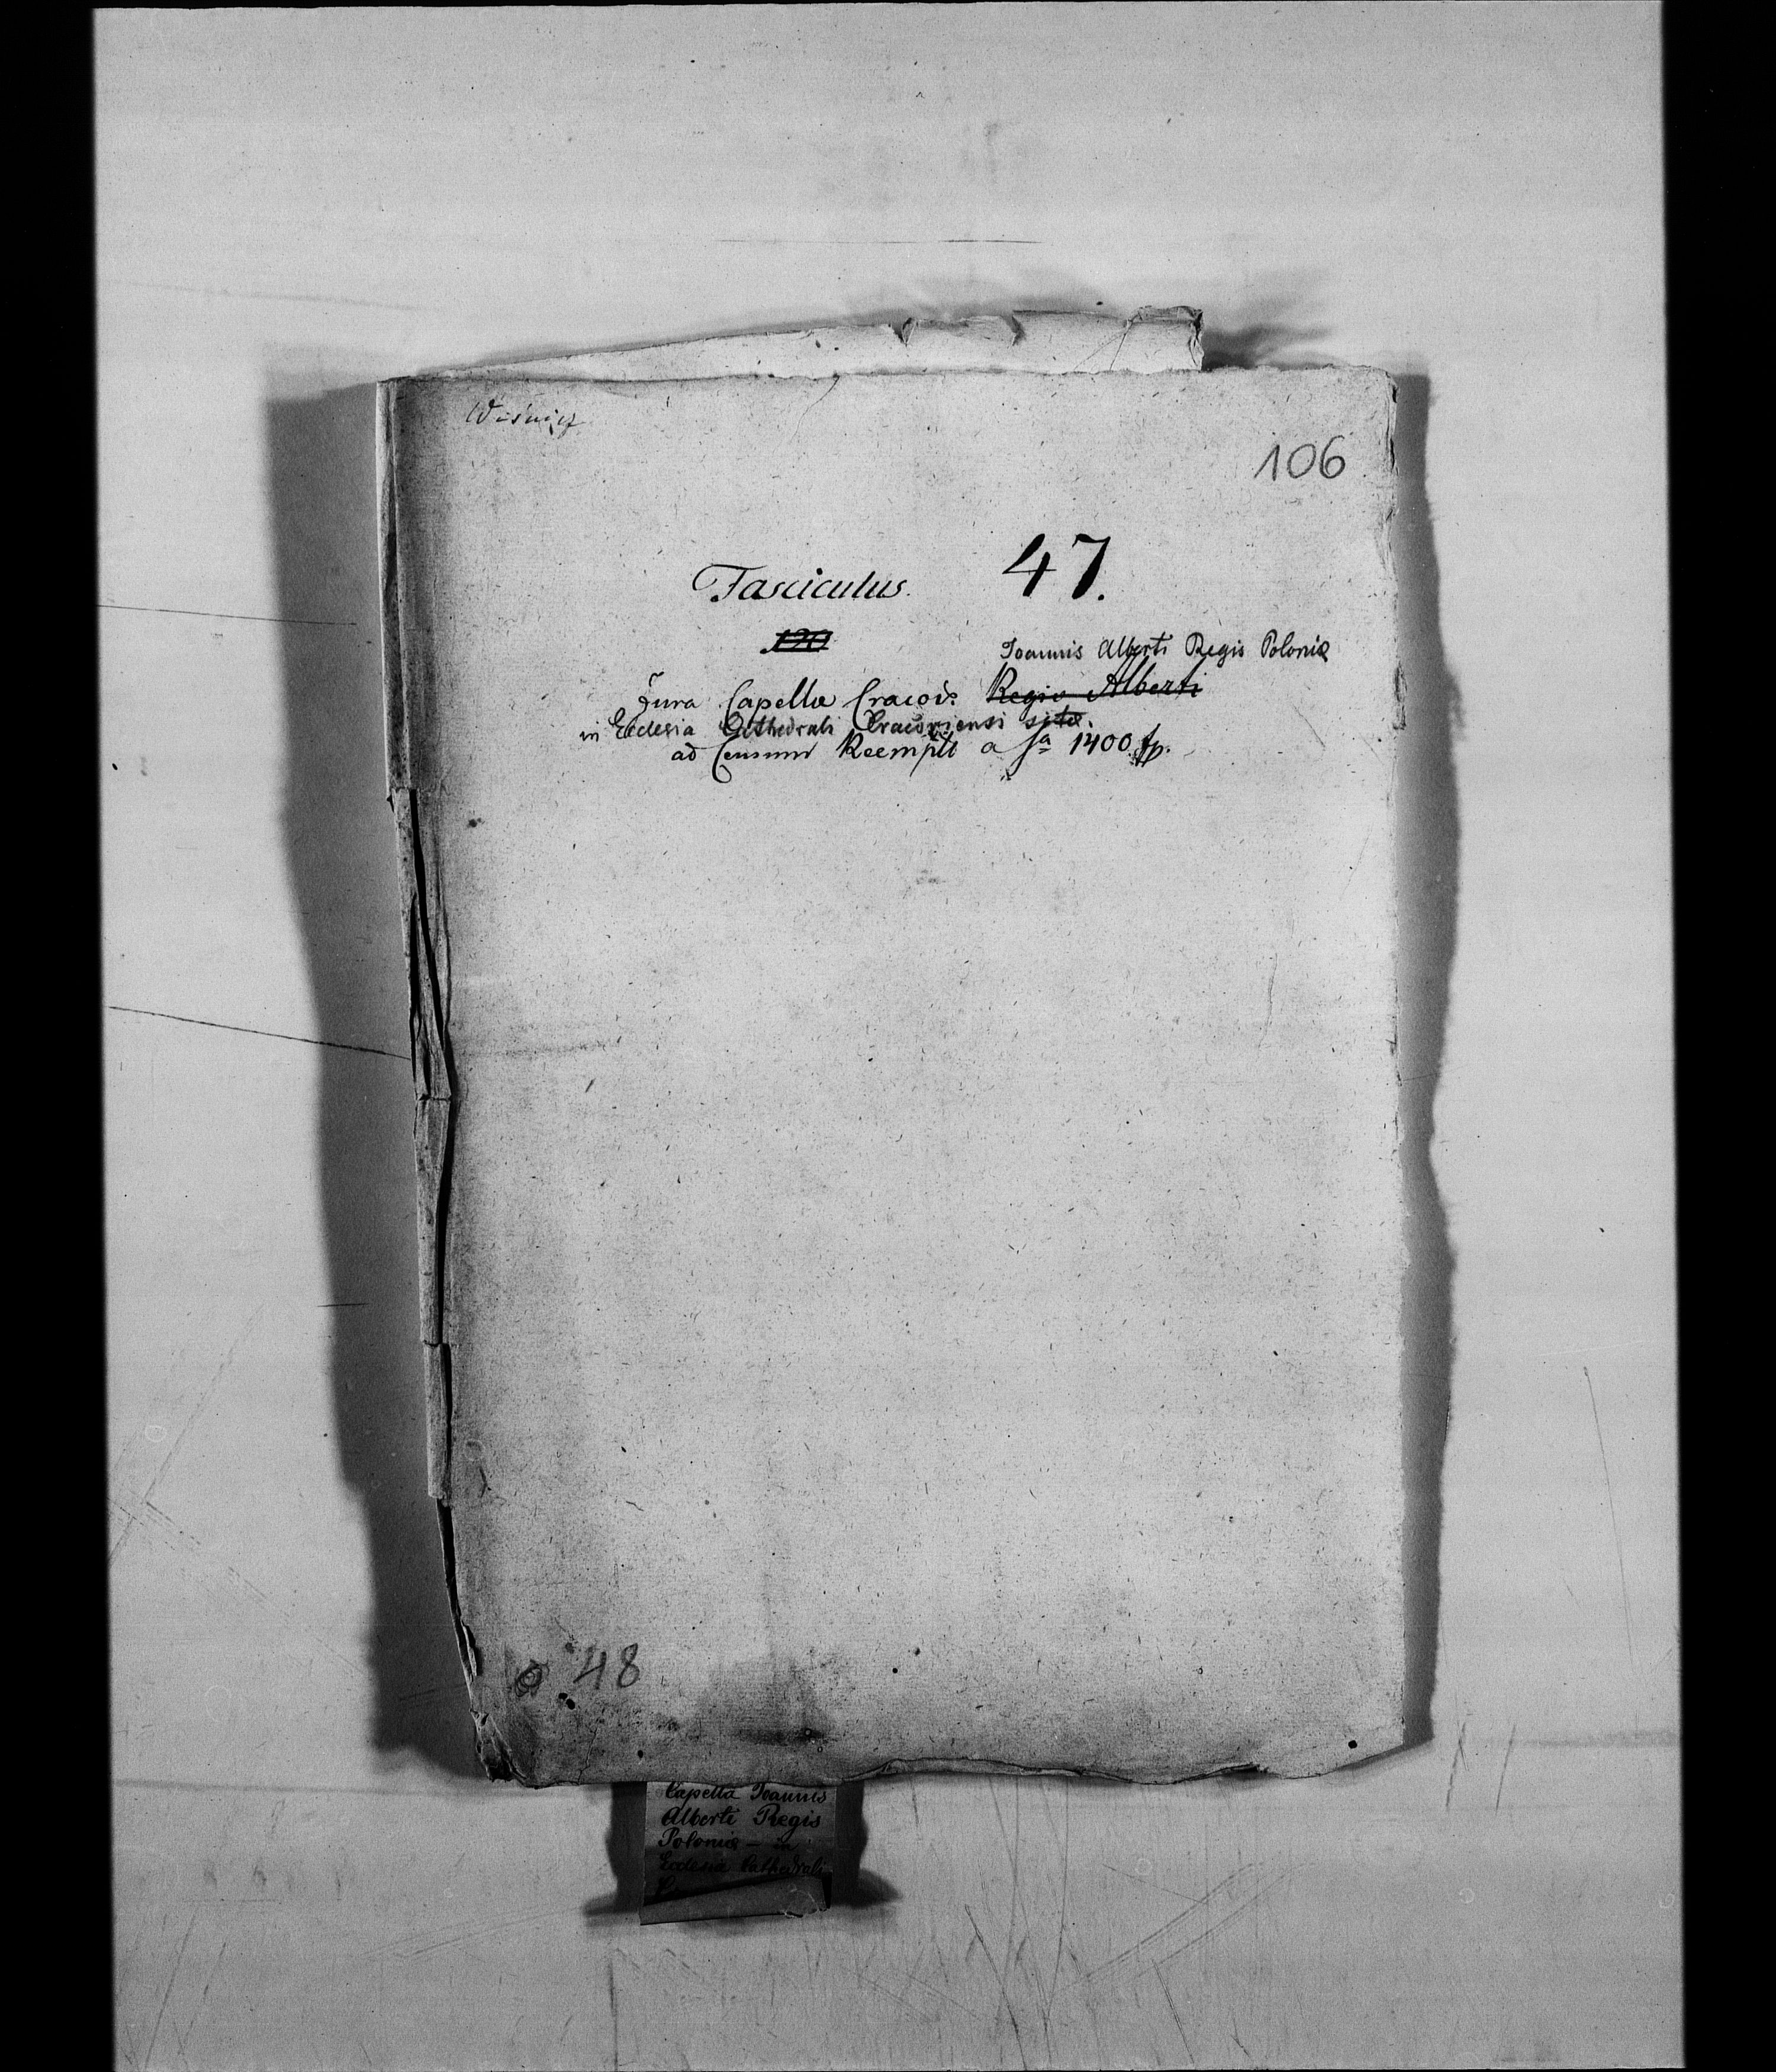 Wiśnicz
106
Fasciculus. 47.
120
Ioannis Alberti Regis Poloniæ
Jura Capellæ Cracov. Regis Alberti
in Ecclesia Cathedrali Cracoviensi sitæ.
ad Censum Reempt a sa 1400 fp.
48
Capella Ioannis
Alberti Regis
Poloniæ – in
Ecclesia Cathedrali